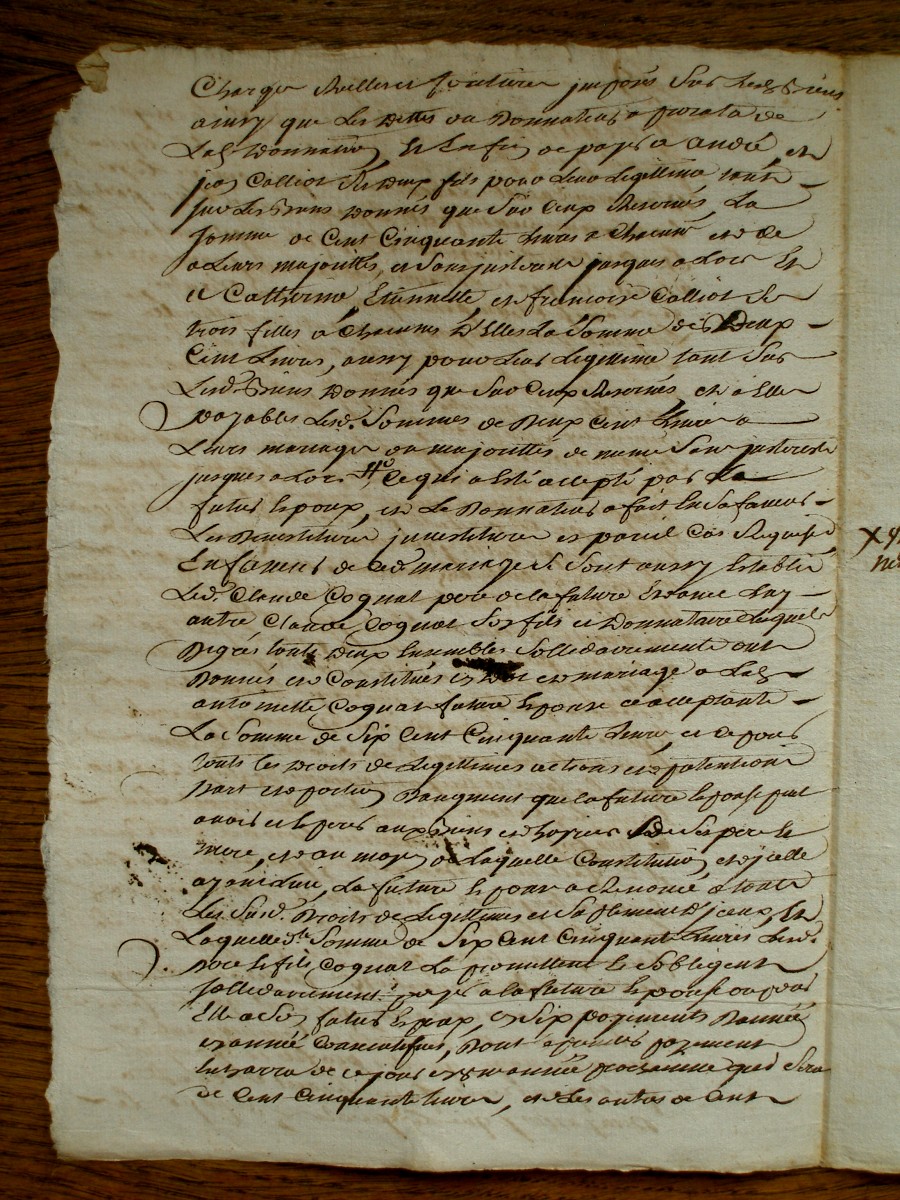 Charges Reelles et foncieres imposés Sur lesd. Biens
ainsy que les dettes du Donnateur a
Lad. Donnation, Et Enfin de payer a André, et
jean Calliot Ses Deux fils pour Leur Legittime tant
sur Les Biens Donnés que Sur Ceux Reservés, La
somme de Cent Cinquante livres a Chacun et de
a Leurs majorittés, et Sans jnterests jusques a Lors Et
a Catherine, Etiennette, et francoise Calliot Ses
trois filles a Chacunes D'Elles La Somme de Deux
Cent Livres, aussy pour Leur Legittime tant Sur
Lesd. Biens Donnés que Sur Ceux Reservés, et a Elles
payables Lesd. Sommes de Deux Cent livres a
Leurs mariages ou majorittés de même Sans jnterests
jusques a Lors, Ce qui a Esté accepté par Le
futur Epoux, et Le Donnateur a fait En Sa faveur
Les Devestitures jnvestitures en pareil Cas Requises
En faveur de ced. mariage Se Sont aussy Establis
Led. Claude Coquat pere de la future Et
autre Claude Coquat Son fils et Donnataire Lesquels
De grés touts Deux Ensembles Sollidairement ont
Donnés et Constitués en Dot et mariage a Lad.
antoinette Coquat future Epouse acceptante
La Somme de Six Cent Cinquante livres, et ce pour
touts les Droits de Legittimes actions et pretentions
Part et portion D'augment que la future Epouse peut
avoir et Esperer aux Biens et hoiries de Ses pere Et
mere, et au moyen de Laquelle Constitution et jcelle
, La future Epouse a Renoncé a touts
Les Susd. Droits de Legittimes et Suplement D'jceux, Et
Laquelle de. Somme de Six Cent Cinquante livres Lesd.
Pere Et fils Coquat La promettent Et S'obligent
Sollidairement payer a la future Epouse ou pour
Elle a Son futur Epoux, en Six payements D'année
en année Consecutifves, Dont le premier payement
de ce jour en une année prochaine qui Sera
de Cent Cinquante livres, et Les autres de Cent